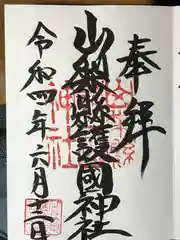 奉拝
山梨縣護國神社
令和四年六月十二日